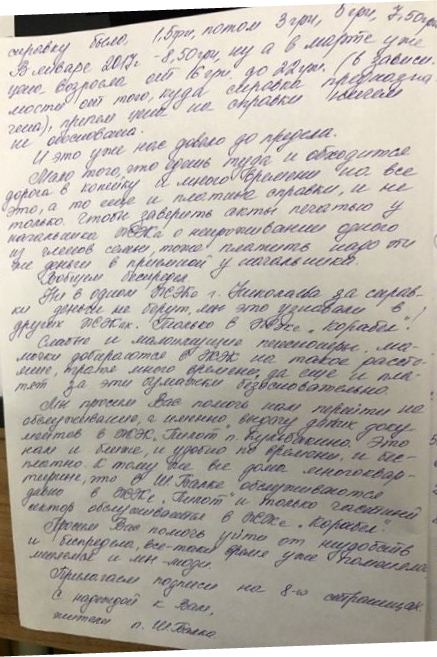 справку было 1,5грн, потом 3 грн, 6 грн, 7,50грн
В январе 2017г. - 8,50грн, ну а в марте уже
цена возросла от 16 грн. до 22грн. (в зависи-
мости от того, куда справка предназна
чена), причем цена на справки ничем
не обоснована.
И это уже нас довело до предела.
Мало того, это ездить туда и обходится
дорого в копейку и много времени на все
это, а то еще и платные справки, и не
только. Чтобы заверить акты печатью у
начальника ЖЭКа о непроживании одного
из членов семьи, тоже платить надо эти
же деньги в приемной у начальника.
Вообщем беспредел.
Ни в одном ЖЭКе г. Николаева за справ-
ки деньги не берут, мы это узнавали в
других ЖЭКах. Только в ЖЭКе „Корабел".
Слабые и малоимущие пенсионеры, ма-
мочки добираются в ЖЭК на такое рассто-
яние, тратя много времени, да еще и пла-
тят за эти бумажки безосновательно.
Мы просим Вас помочь нам перейти на
обслуживание, а именно выдачу этих доку-
ментов в ЖЭК „Пилот" п. Кульбакино. Это
нам и ближе, и удобно по времени, и бес-
платно. К тому же все дома многоквар-
тирные, что в Ш.Балке обслуживаются
давно в ЖЭКе „Пилот" и только частный
сектор обслуживается в ЖЭКе „Корабел".
Просим Вас помочь уйти от неудобств
и беспредела, все-таки время уже поменяло
и мы люди.
Прилагаем подписи на 8-ю страницах
С надеждой к Вам,
жители п. Ш.Балка